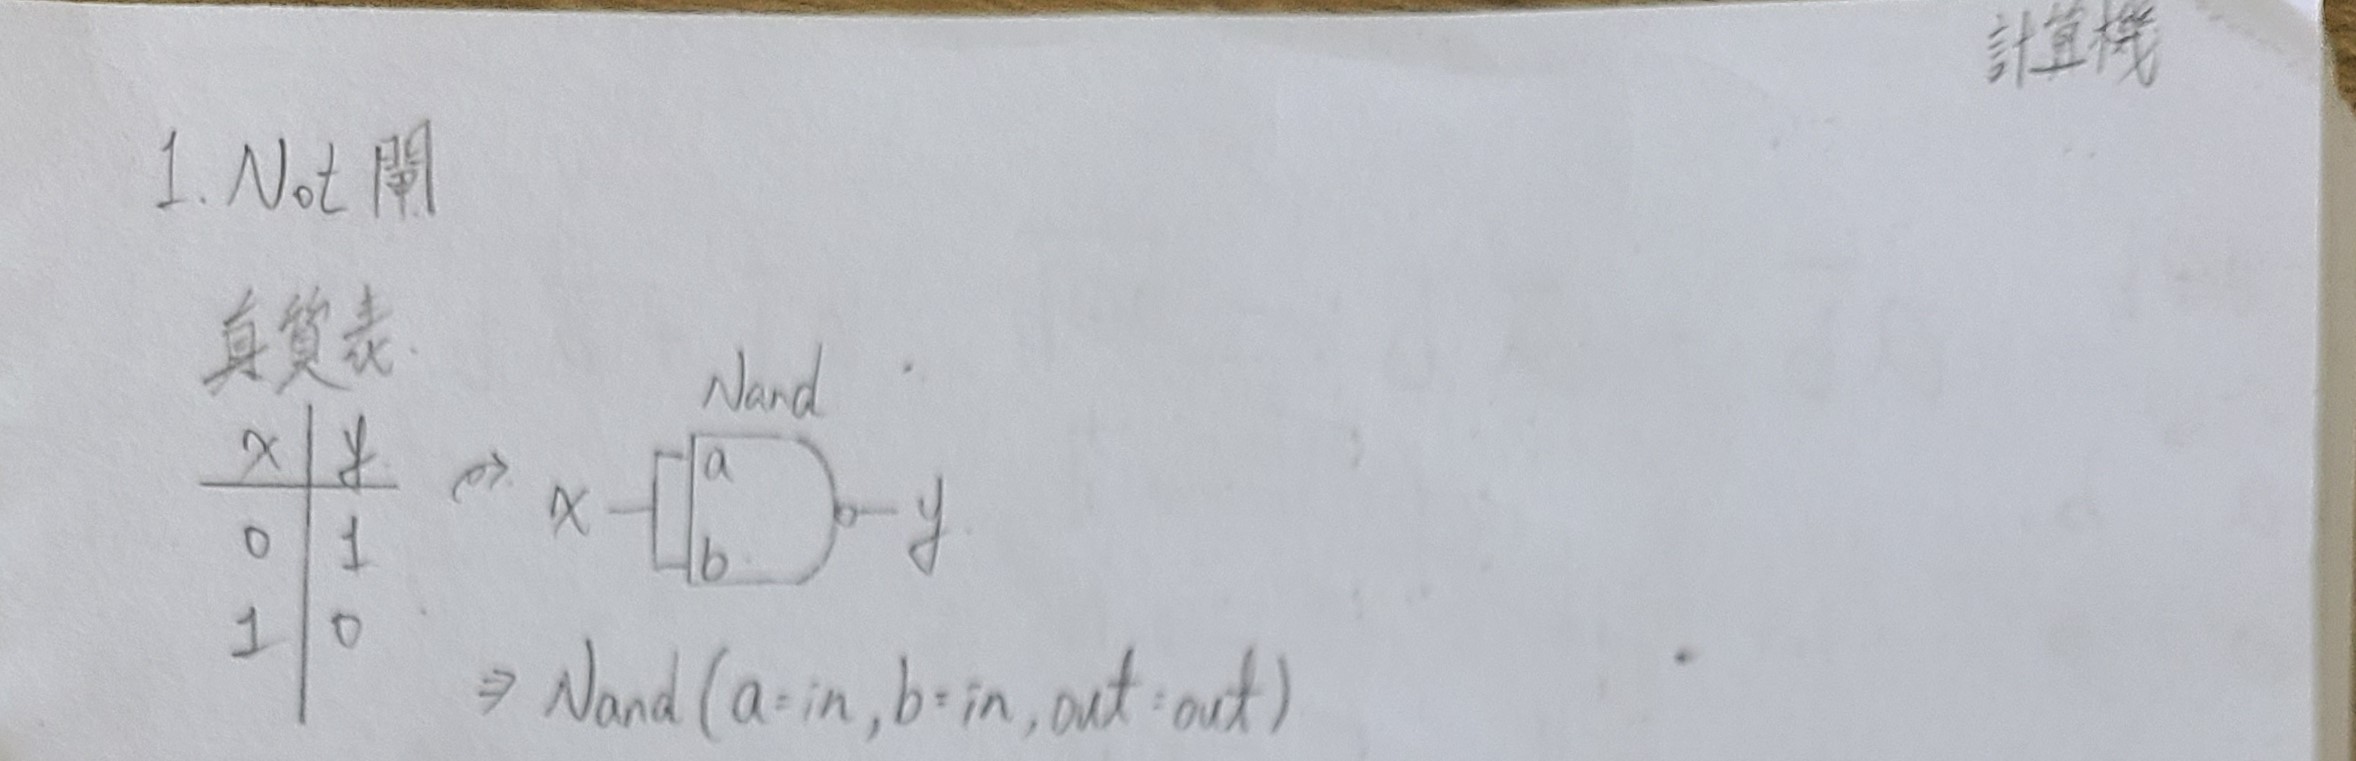 計算機
1. Not 閘
真質表
x y
0 1
1 0
Nand
x a b y
⇒ Nand (a=in, b=in, out=out)